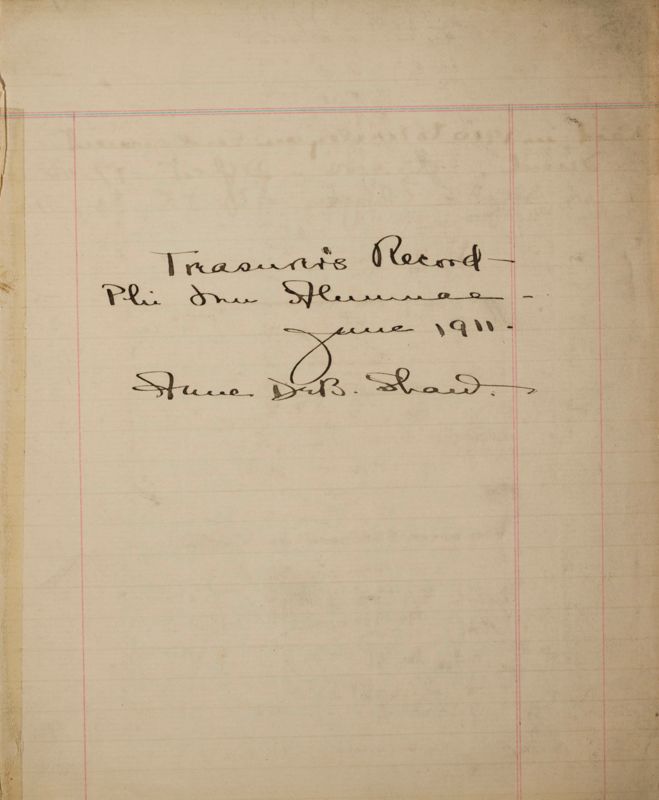 Treasurer's Record -
Phi Mu Alumnae -
June 1911 -
Anne DeB. Shaw.